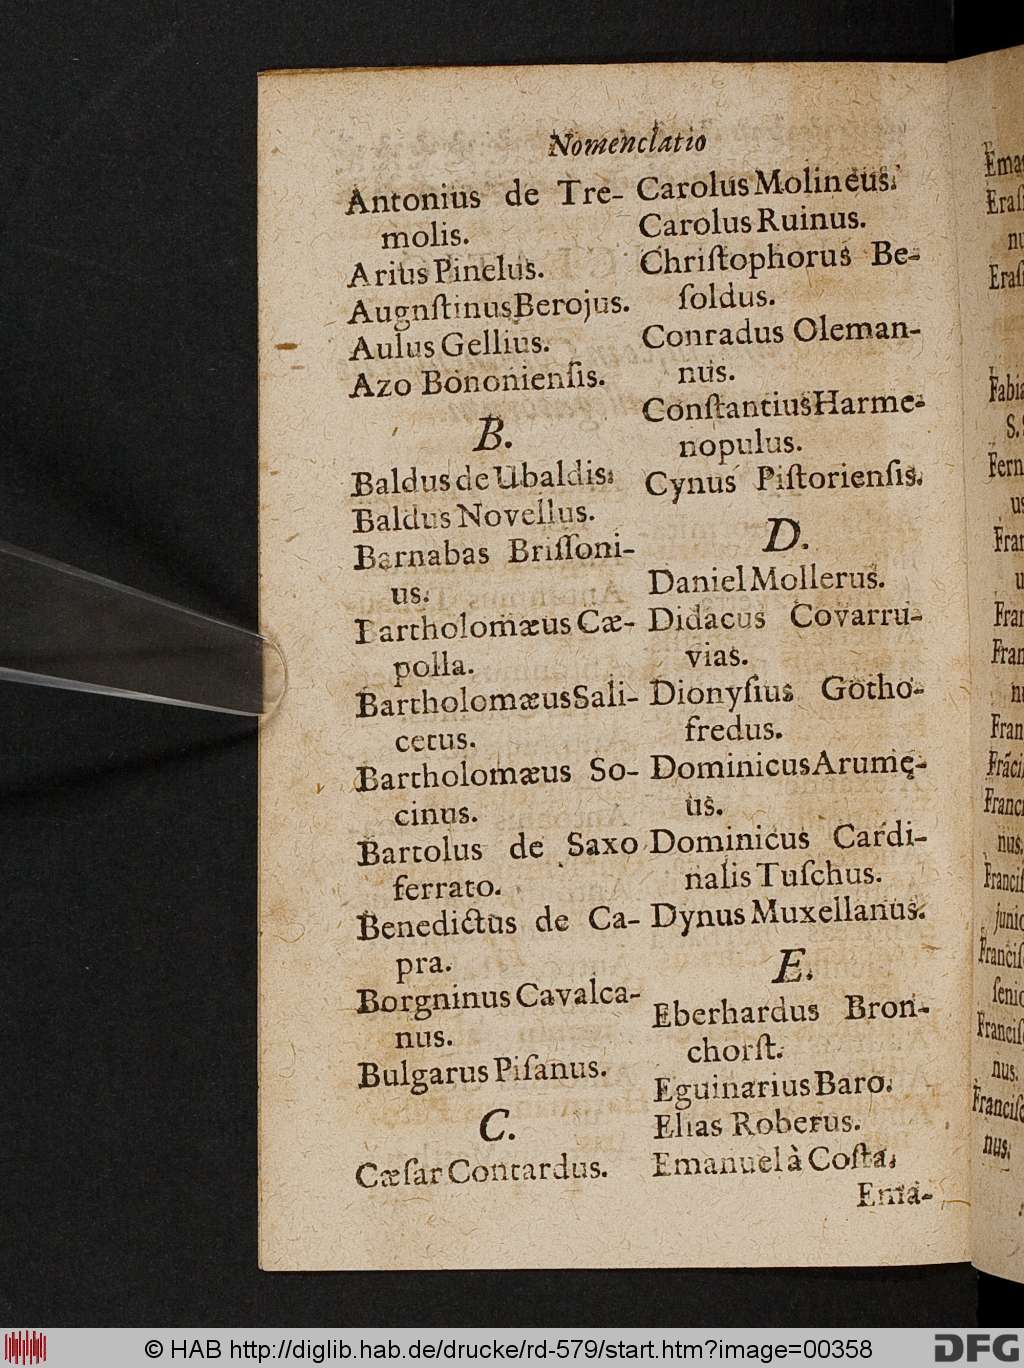 Nomenclatio
Antonius de Tre-
molis.
Arius Pinelus.
AugnſtinusBerojus.
Aulus Gellius.
Azo Bononienſis.
B.
Baldus de Ubaldis.
Baldus Novellus.
Barnabas Briſſoni-
us.
Bartholomæus Cæ-
polla.
BartholomæusSali-
cetus.
Bartholomæus So-
cinus.
Bartolus de Saxo
ferrato.
Benedictus de Ca-
pra.
Borgninus Cavalca-
nus.
Bulgarus Piſanus.
C.
Cæſar Contardus.
Carolus Molineus.
Carolus Ruinus.
Chriſtophorus Be-
ſoldus.
Conradus Oleman-
nus.
ConſtantiusHarme-
nopulus.
Cynus Piſtorienſis.
D.
Daniel Mollerus.
Didacus Covarru-
vias.
Dionyſius Gotho-
fredus.
Dominicus Arumę-
us.
Dominicus Cardi-
nalis Tuſchus.
Dynus Muxellanus.
E.
Eberhardus Bron-
chorſt.
Eguinarius Baro.
Elias Roberus.
Emanuel à Coſta.
Ema-
© HAB http://diglib.hab.de/drucke/rd-579/start.htm?image=00358
DFG